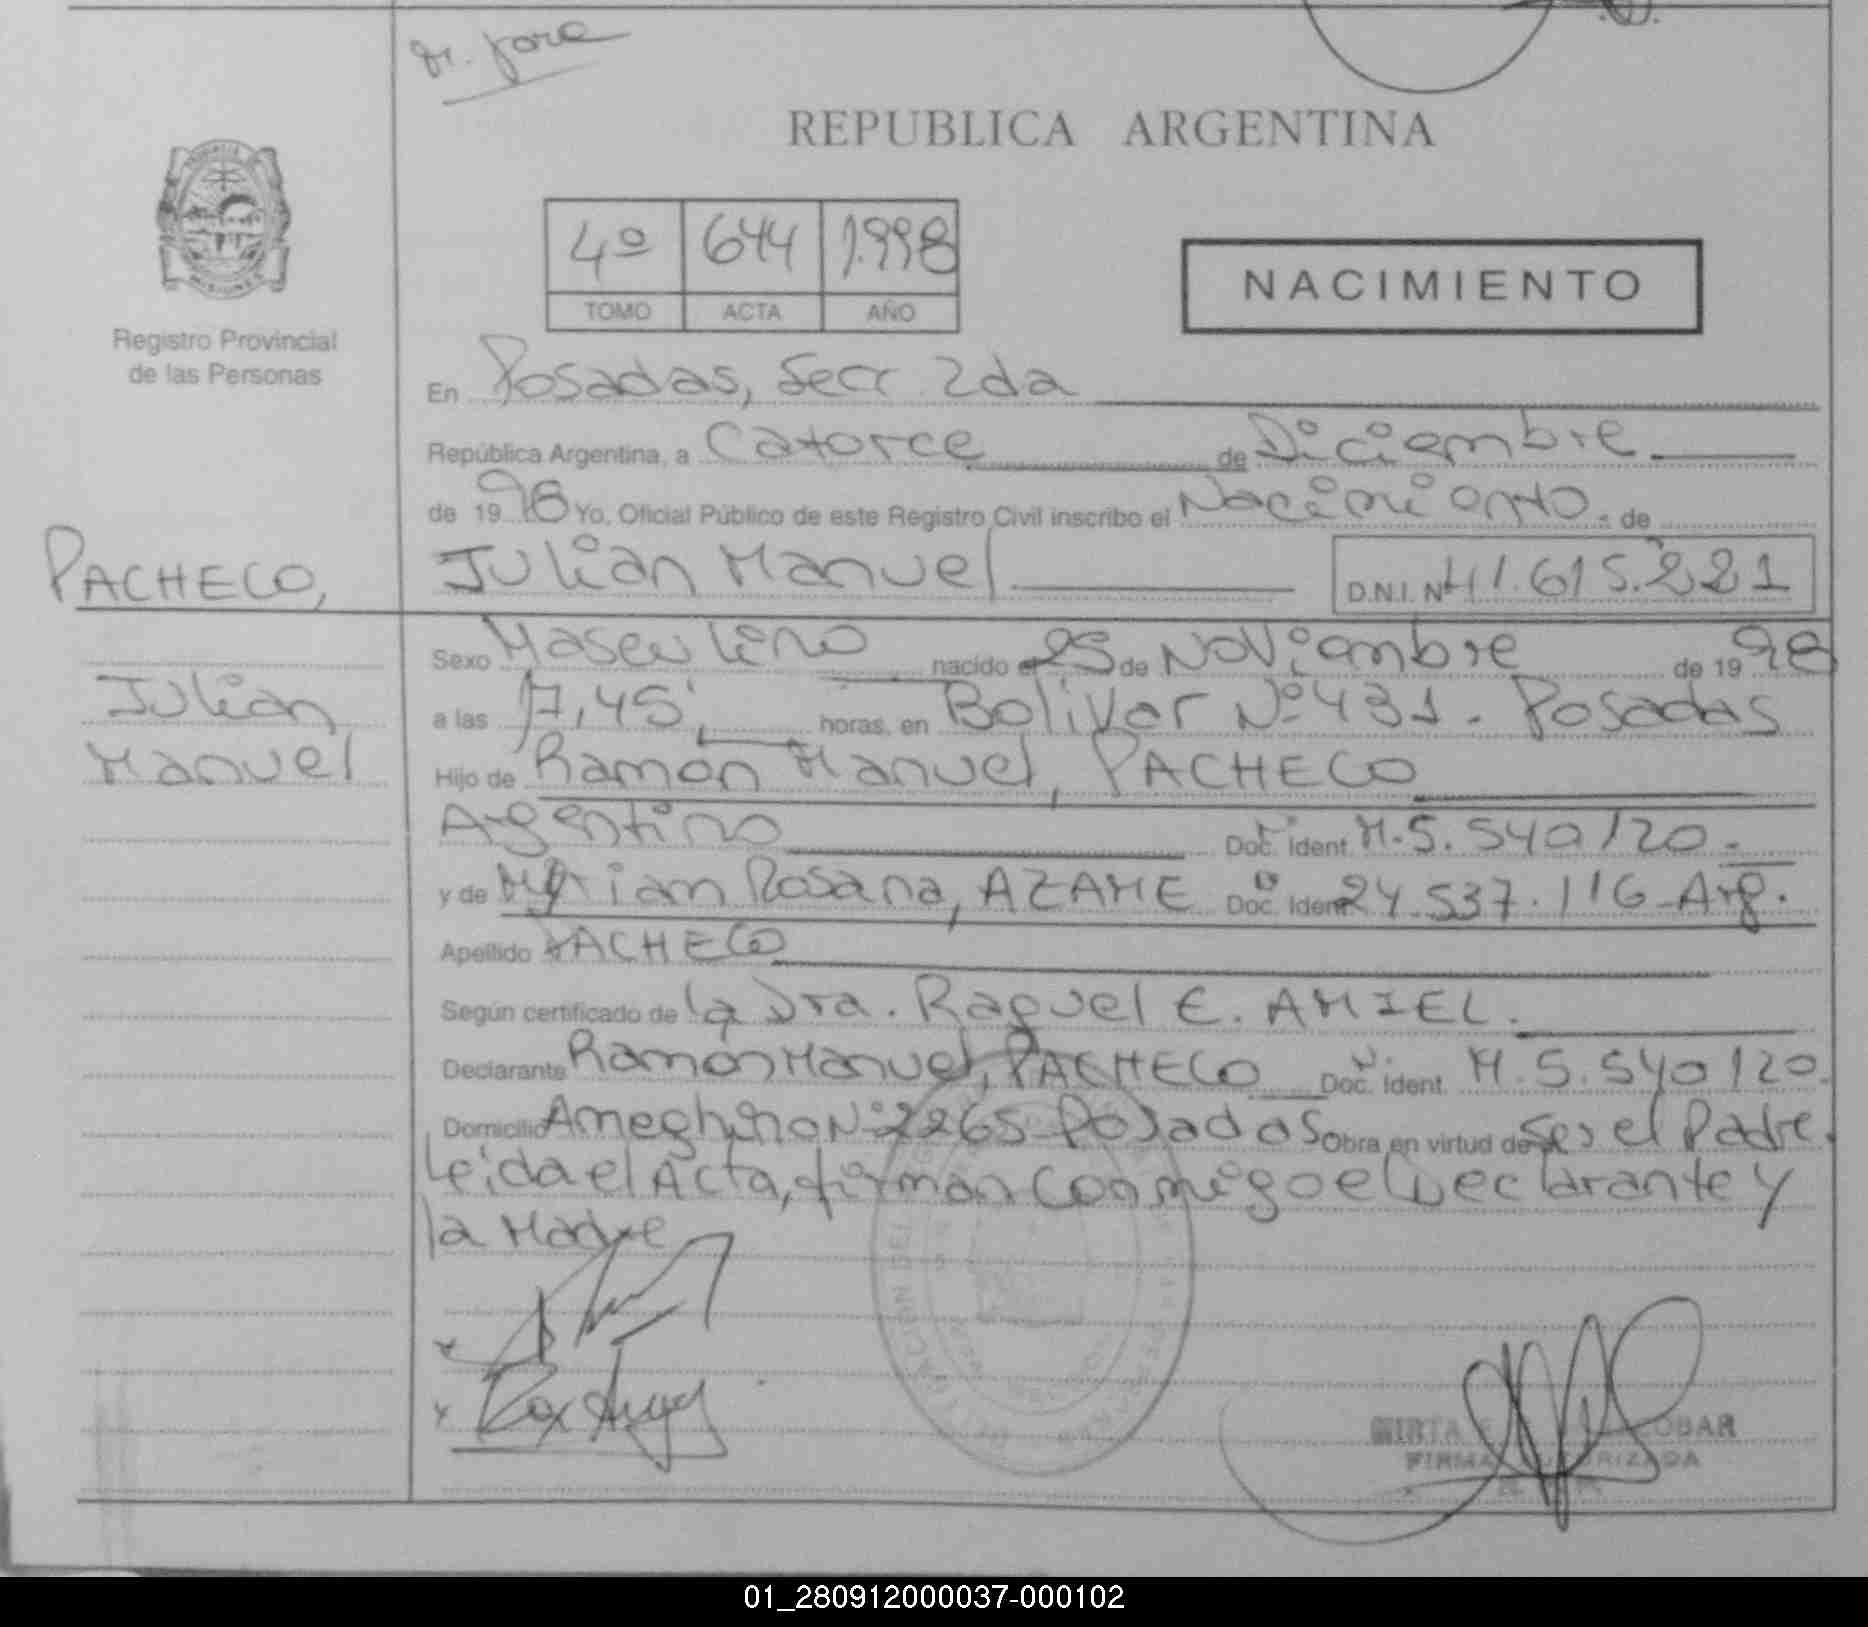 REPUBLICA ARGENTINA
4º 644 1.998
TOMO ACTA AÑO
NACIMIENTO
Registro Provincial
de las Personas
En Posadas, Secc 2da
República Argentina, a Catorce de Diciembre
de 1998 Yo, Oficial Público de este Registro Civil inscribo el Nacimiento. de
PACHECO,
Julian Manuel D.N.I. Nº 41.615.221
Julian
Manuel
Sexo Masculino nacido el 25 de Noviembre de 1998
a las 17,45, horas, en Bolivar Nº 431. Posadas
Hijo de Ramón Manuel, PACHECO
Argentino Doc. Ident. M.5.540120.
y de Myriam Rosana, AZAME Doc. Ident. 24.537.116 Arg.
Apellido PACHECO
Según certificado de la Dra. Raquel E. AMIEL.
Declarante Ramón Manuel, PACHECO Doc. Ident. M.5.540120.
Domicilio Ameghino Nº 2265 Posadas Obra en virtud de Ser el Padre.
Leida el Acta, firman conmigo el Declarante y
la Madre
MIRTA
FIRMA AUTORIZADA
01_280912000037-000102